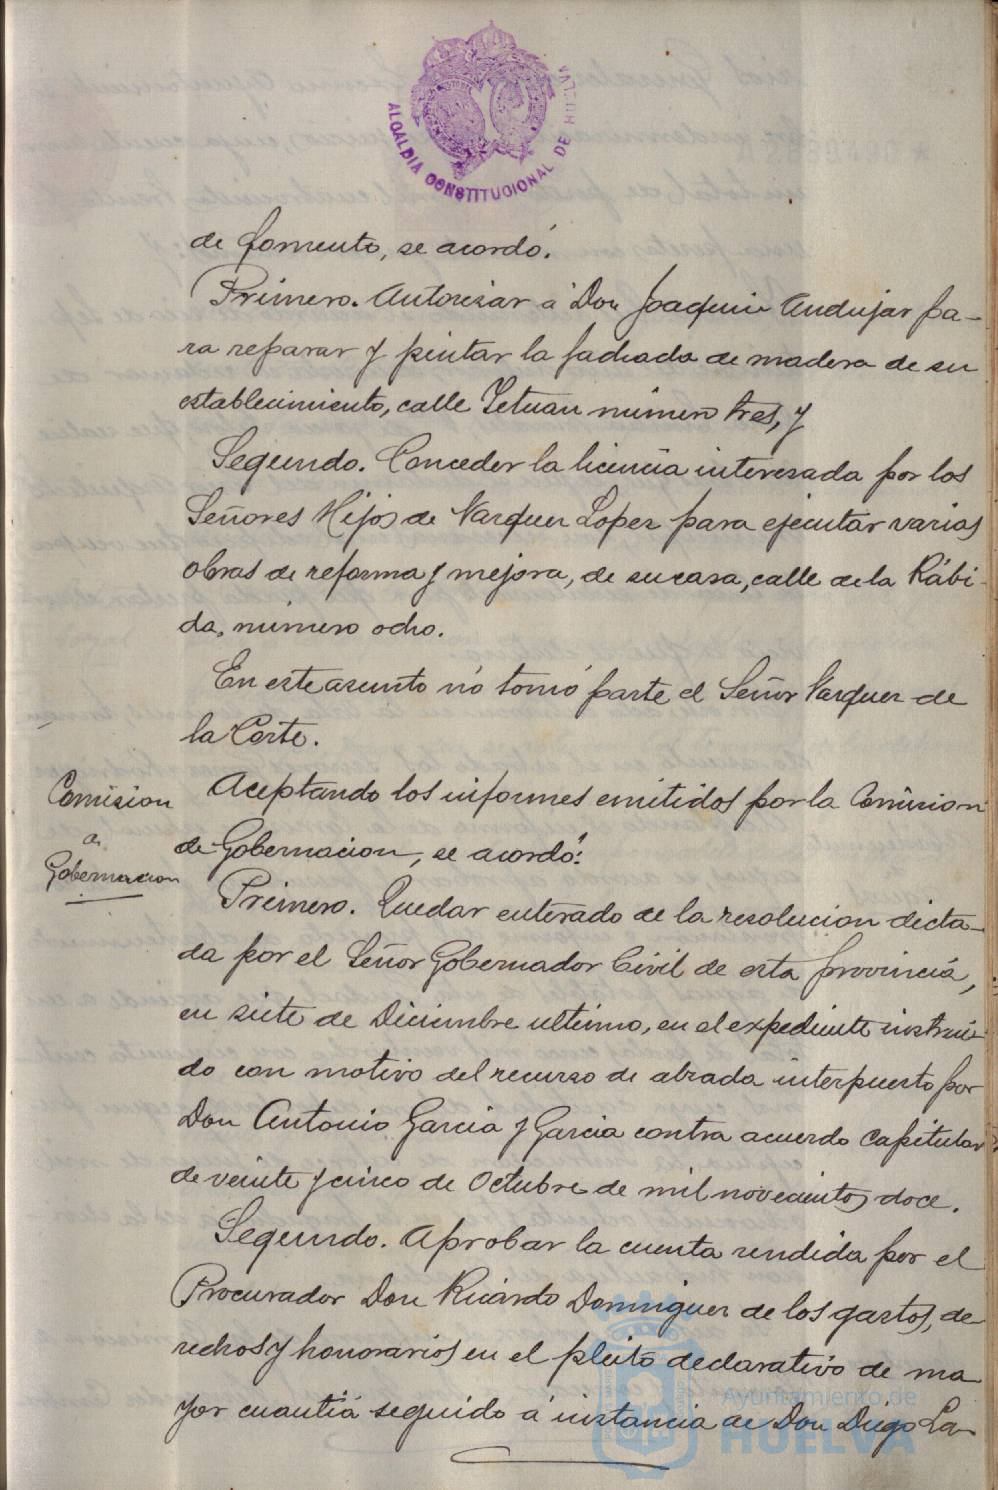 ALCALDIA CONSTITUCIONAL DE HUELVA
de fomento, se acordó.
Primero. Autorizar á Don Joaquin Andujar pa-
ra reparar y pintar la fachada de madera de su
establecimiento, calle Tetuan número tres, y
Segundo. Conceder la licencia interesada por los
Señores Hijos de Vazquez Lopez para ejecutar varias
obras de reforma y mejora, de su casa, calle de la Rábi-
da, número ocho.
En este asunto nó tomó parte el Señor Vazquez de
la Corte.
Comision
de
Gobernacion
Aceptando los informes emitidos por la Comision
de Gobernacion, se acordó:
Primero. Quedar enterado de la resolucion dicta-
da por el Señor Gobernador Civil de esta provincia,
en siete de Diciembre ultimo, en el expediente instrui-
do con motivo del recurso de alzada interpuesto por
Don Antonio Garcia y Garcia contra acuerdo capitular
de veinte y cinco de Octubre de mil novecientos doce.
Segundo. Aprobar la cuenta rendida por el
Procurador Don Ricardo Dominguez de los gastos, de-
rechos y honorarios en el pleito declarativo de ma
yor cuantiá seguido á instancia de Don Diego La-
Ayuntamiento de
HUELVA